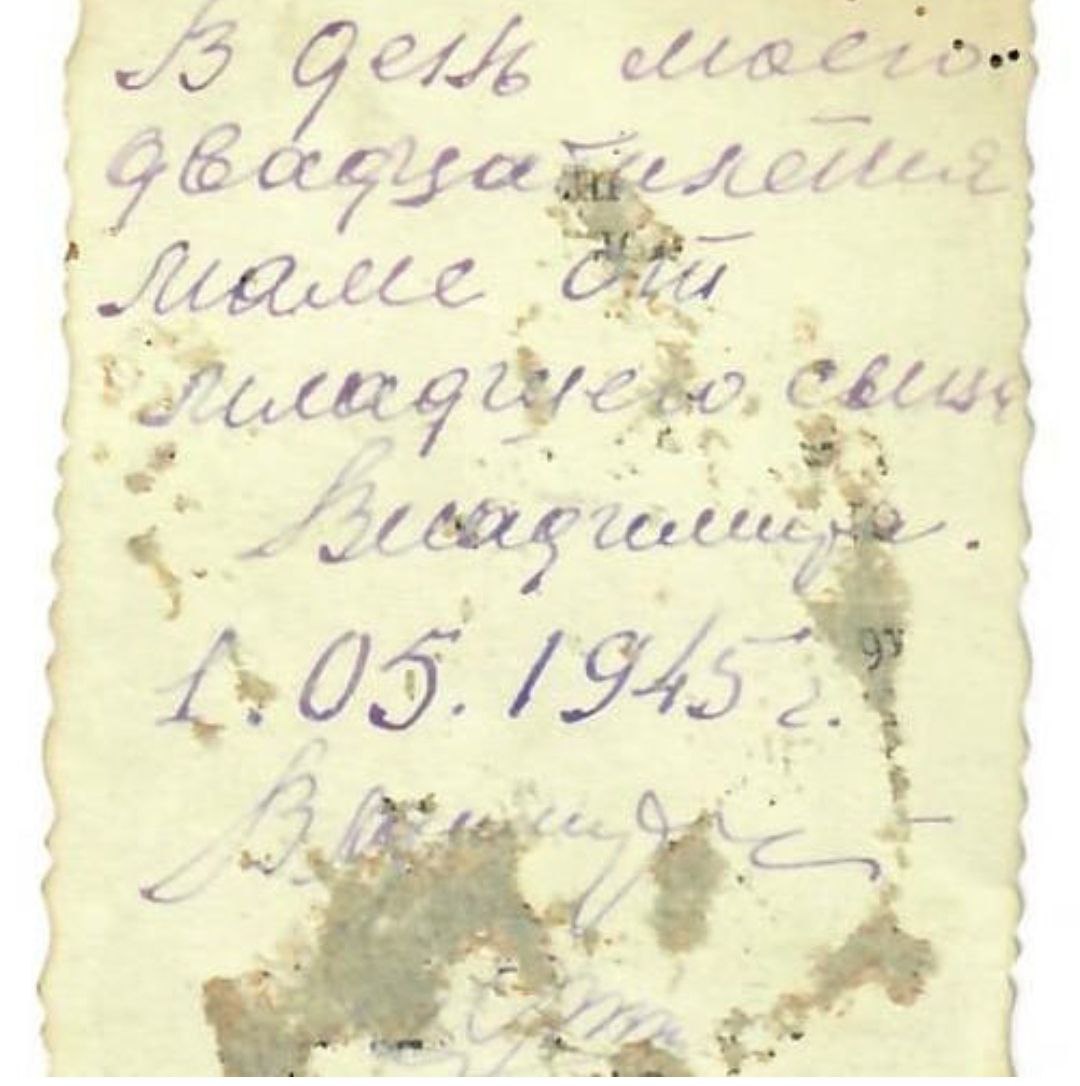 В день моего
двадцатилетия
маме от
младшего сына
Владимира.
1.05.1945 г.